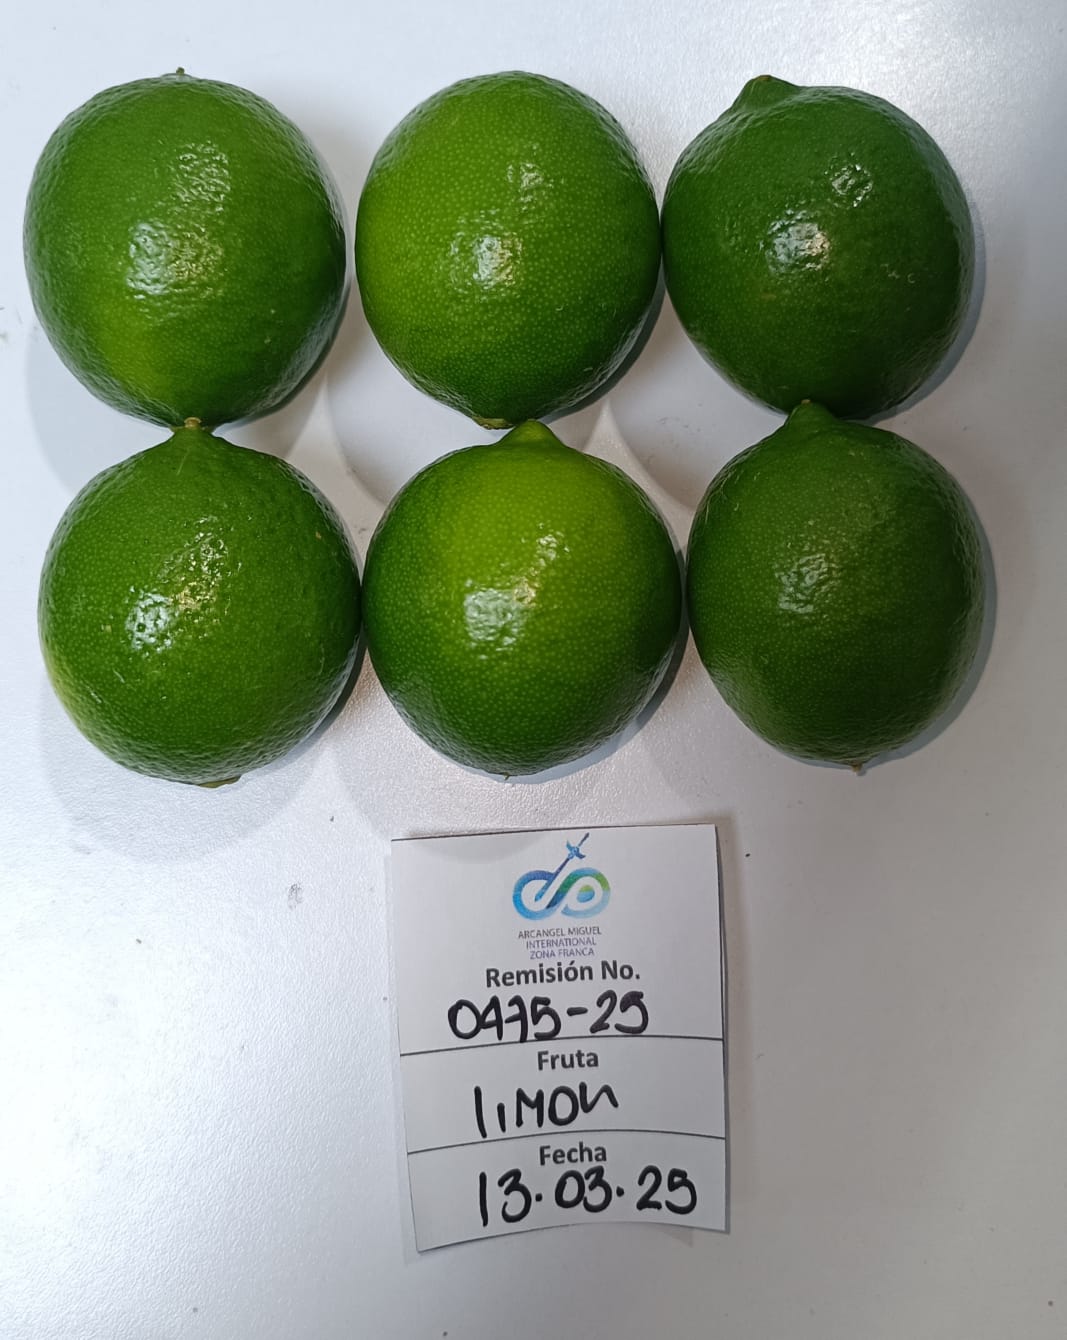 ARCANGEL MIGUEL
INTERNATIONAL
ZONA FRANCA
Remisión No.
0475-25
Fruta
lIMON
Fecha
13.03.25